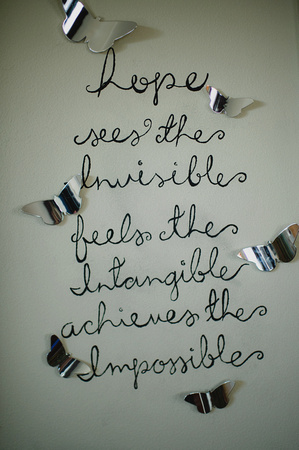 hope
sees the
Invisible
feels the
Intangible
achieves the
Impossible